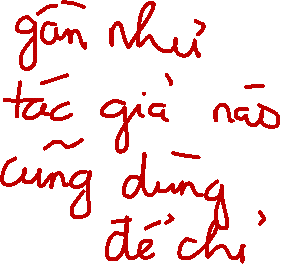 gần như
tác giả nào
cũng dùng
để chỉ